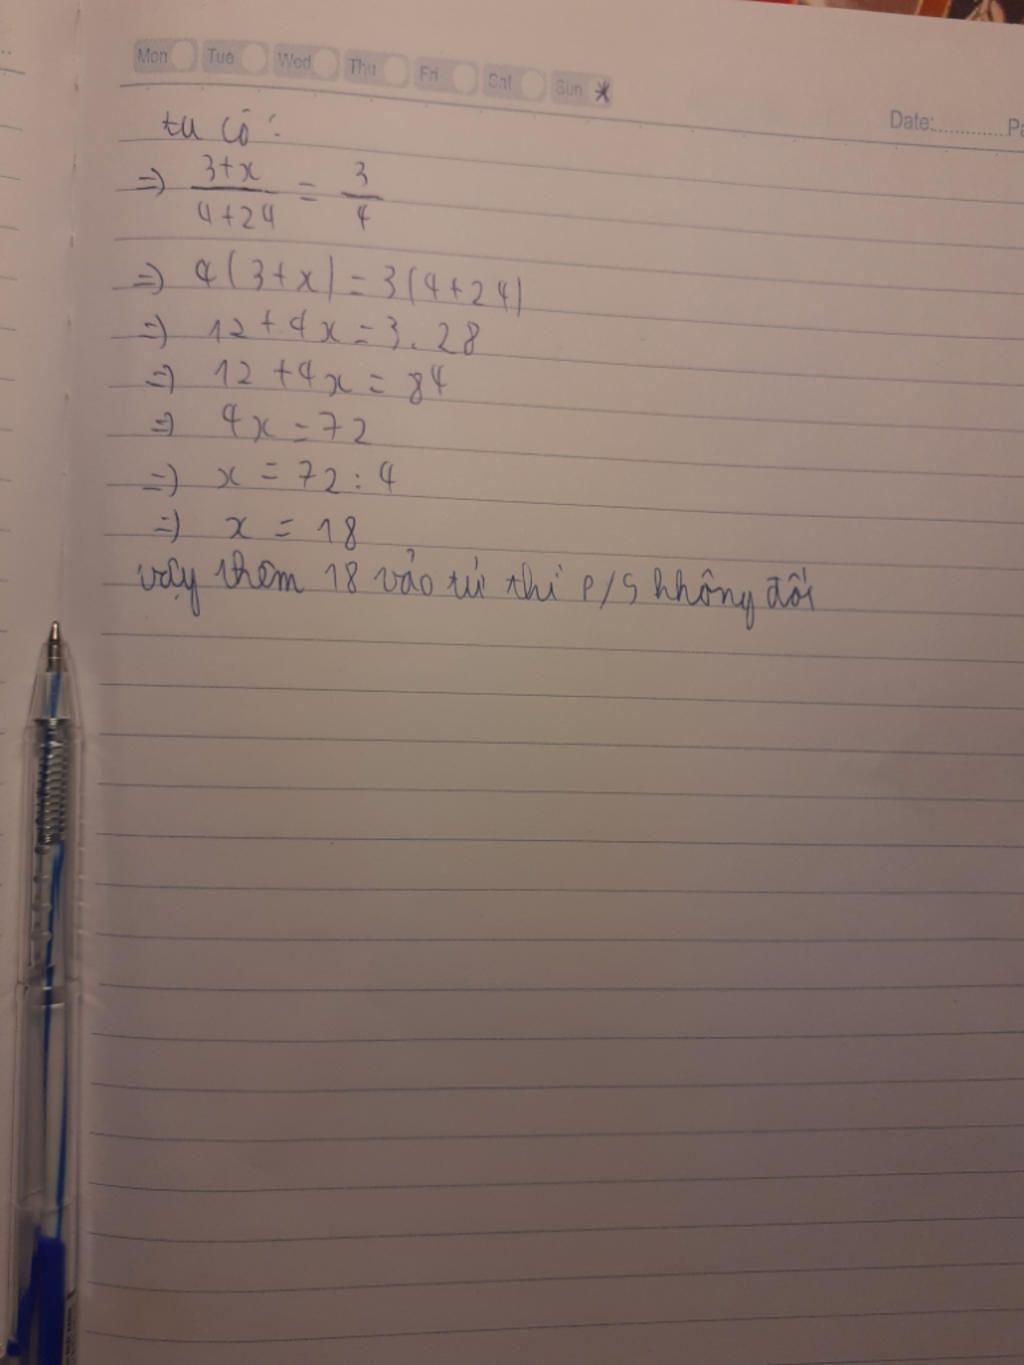 Mon Tue Wed Thu Fri Sat Sun
Date:............Pa
ta có:
=> 3+x / 4+24 = 3 / 4
=> 4(3+x) = 3(4+24)
=> 12+4x = 3.28
=> 12+4x = 84
=> 4x = 72
=> x = 72:4
=> x = 18
vậy thêm 18 vào tử thì P/S không đổi